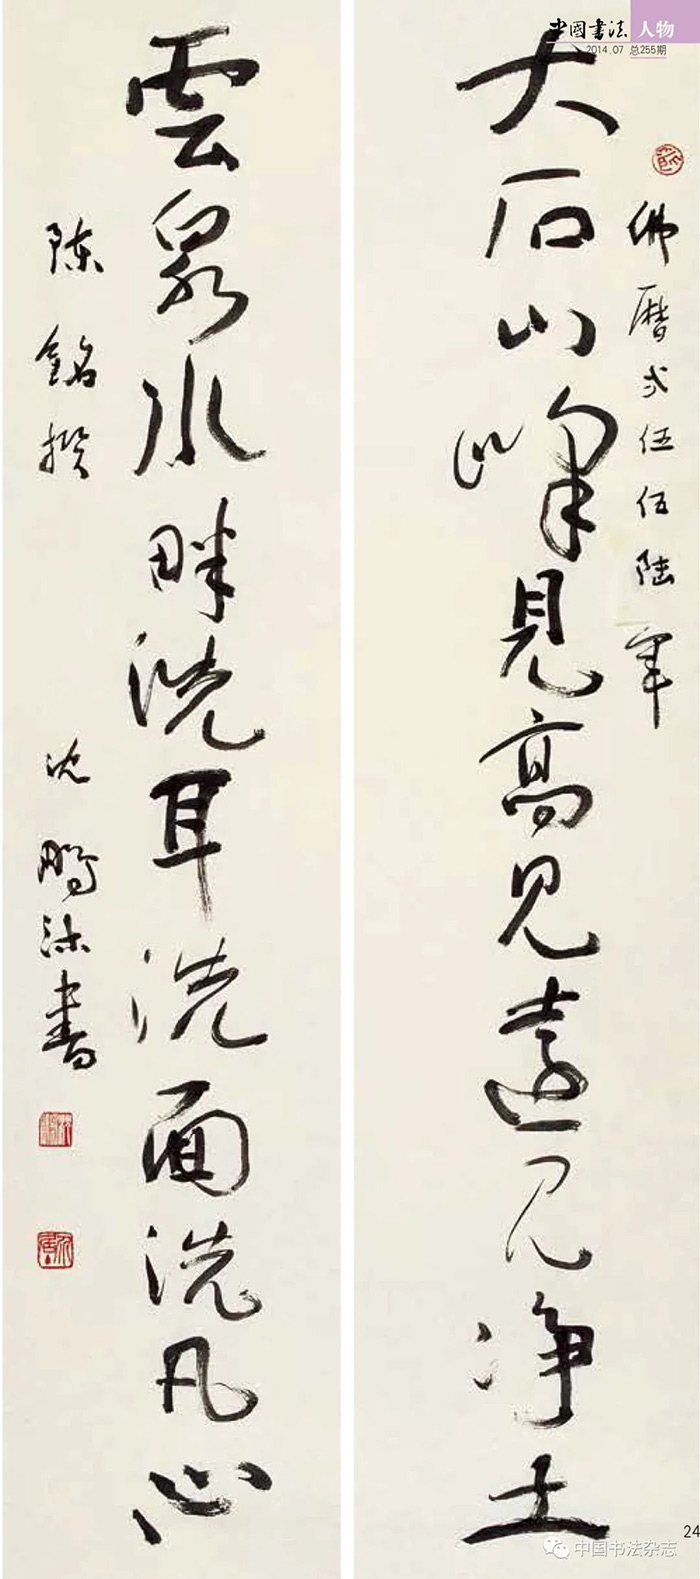 中国书法 人物
2014.07 总255期
佛曆弍伍伍陆年
大石山峰見高見遠見净土
雲泉水畔洗耳洗面洗凡心
陈銘撰
沈鵬沐書
24
中国书法杂志